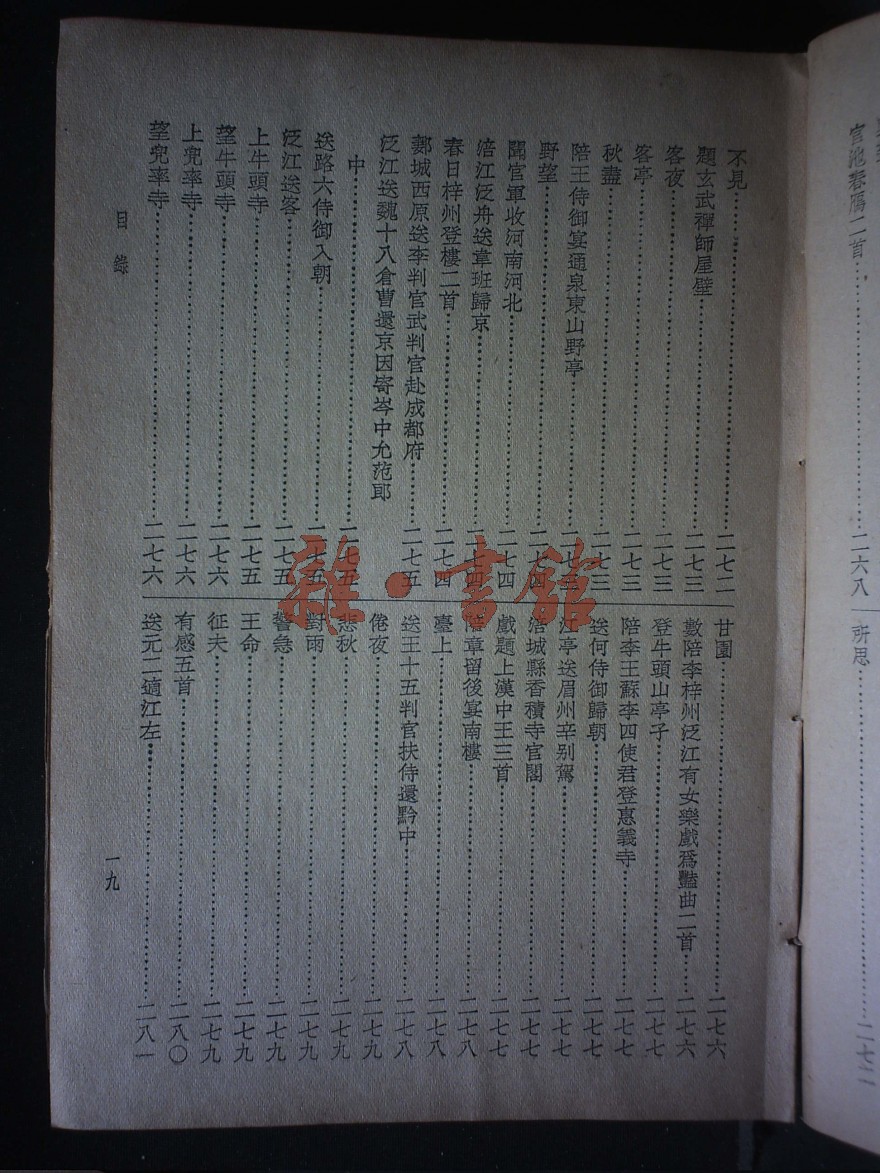 不見⋯⋯二七二
題玄武禪師屋壁⋯⋯二七三
客夜⋯⋯二七三
客亭⋯⋯二七三
秋盡⋯⋯二七三
陪王侍御宴通泉東山野亭⋯⋯二七三
野望⋯⋯二七四
聞官軍收河南河北⋯⋯二七四
涪江泛舟送韋班歸京⋯⋯二七四
春日梓州登樓二首⋯⋯二七四
郪城西原送李判官武判官赴成都府⋯⋯二七五
泛江送魏十八倉曹還京因寄岑中允范郎
中⋯⋯二七五
送路六侍御入朝⋯⋯二七五
泛江送客⋯⋯二七五
上牛頭寺⋯⋯二七五
望牛頭寺⋯⋯二七六
上兜率寺⋯⋯二七六
望兜率寺⋯⋯二七六
甘園⋯⋯二七六
數陪李梓州泛江有女樂戲爲豔曲二首⋯⋯二七六
登牛頭山亭子⋯⋯二七七
陪李王蘇李四使君登惠義寺⋯⋯二七七
送何侍御歸朝⋯⋯二七七
江亭送眉州辛别駕⋯⋯二七七
涪城縣香積寺官閣⋯⋯二七七
戲題上漢中王三首⋯⋯二七七
陪章留後宴南樓⋯⋯二七八
臺上⋯⋯二七八
送王十五判官扶侍還黔中⋯⋯二七八
倦夜⋯⋯二七九
悲秋⋯⋯二七九
對雨⋯⋯二七九
警急⋯⋯二七九
王命⋯⋯二七九
征夫⋯⋯二七九
有感五首⋯⋯二八〇
送元二適江左⋯⋯二八一
目錄
一九
官池春鴈二首⋯⋯二六八
所思⋯⋯二七二
雜·書館